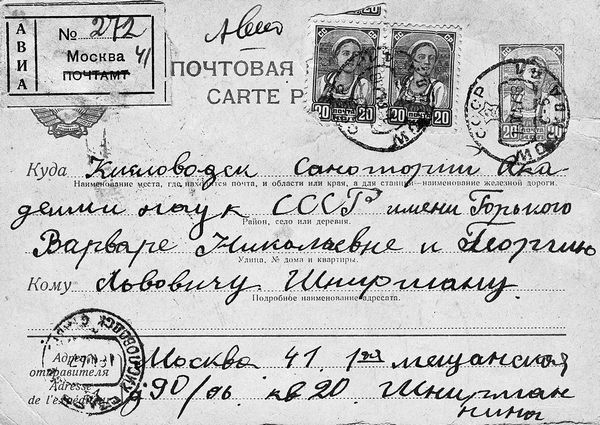 Авио
АВИА
№ 272
Москва 41
ПОЧТАМТ
ПОЧТОВАЯ
CARTE P
20 20 20 20
20
СССР
Куда Кисловодск Санотории Ака
Наименование места, где находится почта, и области или края, а для станций—наименование железной дороги.
демии наук СССР имени Горького
Район, село или деревня.
Варваре Николаевне и Георгию
Улица, № дома и квартиры.
Кому Львовичу Ширману.
Подробное наименование адресата.
КИСЛОВОДСК
Адрес отправителя Москва 41. 1ая мещанская
Adresse de l'expéditeur д 90/ кв 20 Ширман
нины